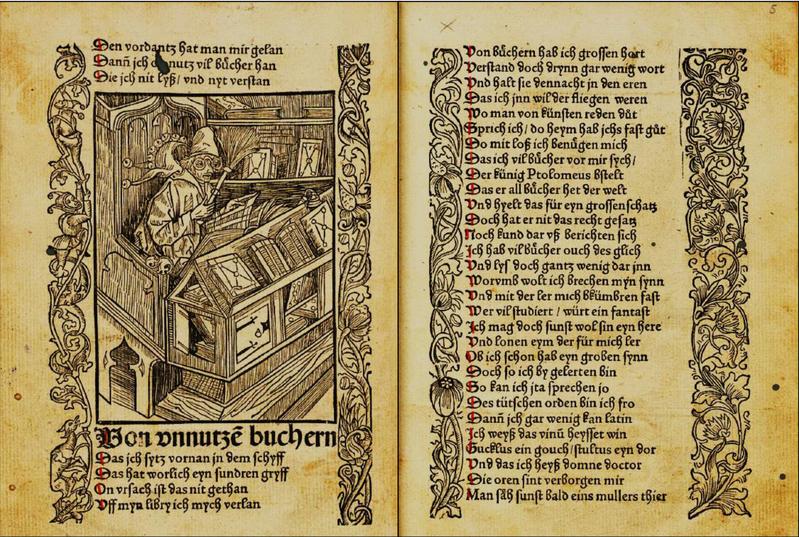 Den vordantz hat man mir gelan
Dañ jch on nutz vil bůcher han
Die jch nit lyß / vnd nyt verstan
Von vnnutzē buchern
Das jch sytz vornan jn dem schyff
Das hat worlich eyn sundren gryff
On vrsach ist das nit gethan
Vff myn libry ich mych verlan
5
Von bůchern hab ich grossen hort
Verstand doch drynn gar wenig wort
Vnd halt sie dennacht jn den eren
Das ich jnn wil der fliegen weren
Wo man von künsten reden důt
Sprich ich / do heym hab jchs fast gůt
Do mit loß ich benügen mich
Das ich vil bůcher vor mir sych /
Der künig Ptolomeus bstelt
Das er all bůcher het der welt
Vnd hyelt das für eyn grossen schatz
Doch hat er nit das recht gesatz
Noch kund dar vß berichten sich
Ich hab vil bůcher ouch des glich
Vnd lys doch gantz wenig dar jnn
Worvmb wolt ich brechen myn synn
Vnd mit der ler mich bkümbren fast
Wer vil studiert / würt ein fantast
Ich mag doch sunst wol sin eyn here
Vnd lonen eym der für mich ler
Ob ich schon hab eyn groben synn
Doch so ich by gelerten bin
So kan ich jta sprechen jo
Des tütschen orden bin ich fro
Dañ jch gar wenig kan latin
Ich weyß das vinū heysset win
Gucklus ein gouch / stultus eyn dor
Vnd das ich heyß domne doctor
Die oren sint verborgen mir
Man sãh sunst bald eins mullers thier